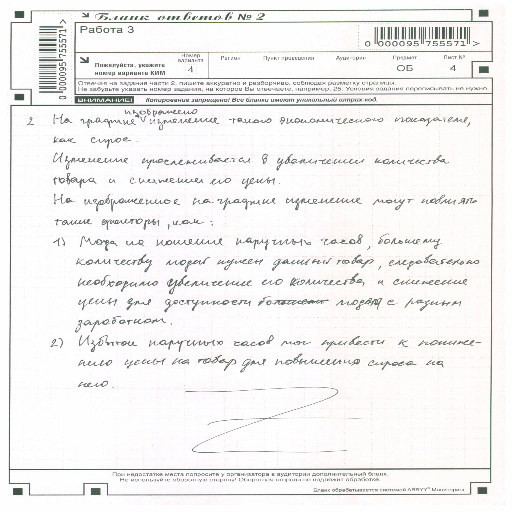 Бланк ответов № 2
Работа 3
0 000095 755571 >
0 000095 755571 >
Пожалуйста, укажите
номер варианта КИМ
Номер варианта
Регион
Пункт проведения
Аудитория
Предмет
Лист №
4
ОБ
4
Отвечая на задания части 2, пишите аккуратно и разборчиво, соблюдая разметку страницы.
Не забудьте указать номер задания, на которое Вы отвечаете, например, 25. Условия задания переписывать не нужно.
ВНИМАНИЕ!
Копирование запрещено! Все бланки имеют уникальный штрих-код.
изображено
2 На графике изменение такого экономического показателя,
как спрос.
Изменение прослеживается в увеличении количества
товара и снижении его цены.
На изображенное на графике изменение могут повлиять
такие факторы, как:
1) Мода на ношение наручных часов, большему
количеству людей нужен данный товар, следовательно
необходимо увеличение его количества и снижение
цены для доступности людям с разным
заработком.
2) Избыток наручных часов мог привести к пониже-
нию цены на товар для повышения спроса на
него.
При недостатке места попросите у организатора в аудитории дополнительный бланк.
Не используйте оборотную сторону! Оборотная сторона не подлежит обработке.
Бланк обрабатывается системой ABBYY Мониторинг